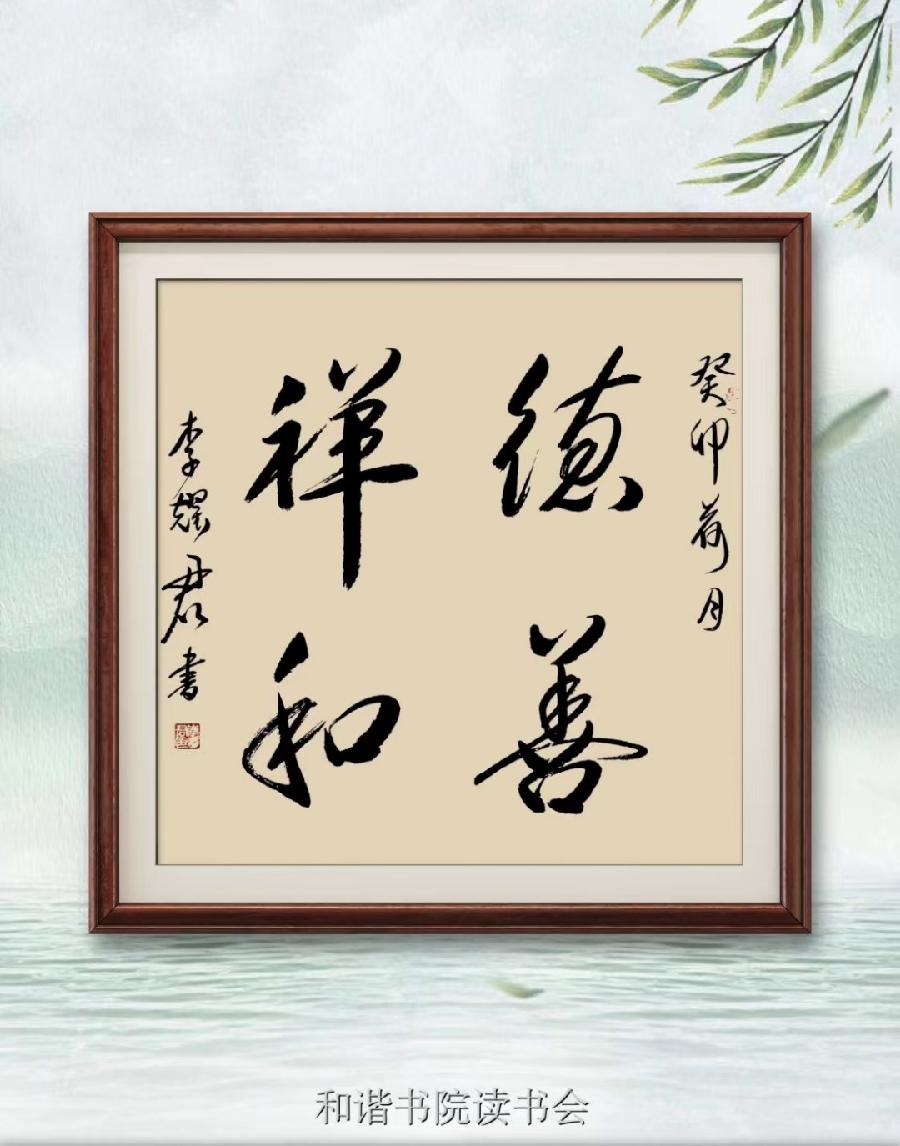 癸卯荷月
德善
祥和
李耀君书
和谐书院读书会